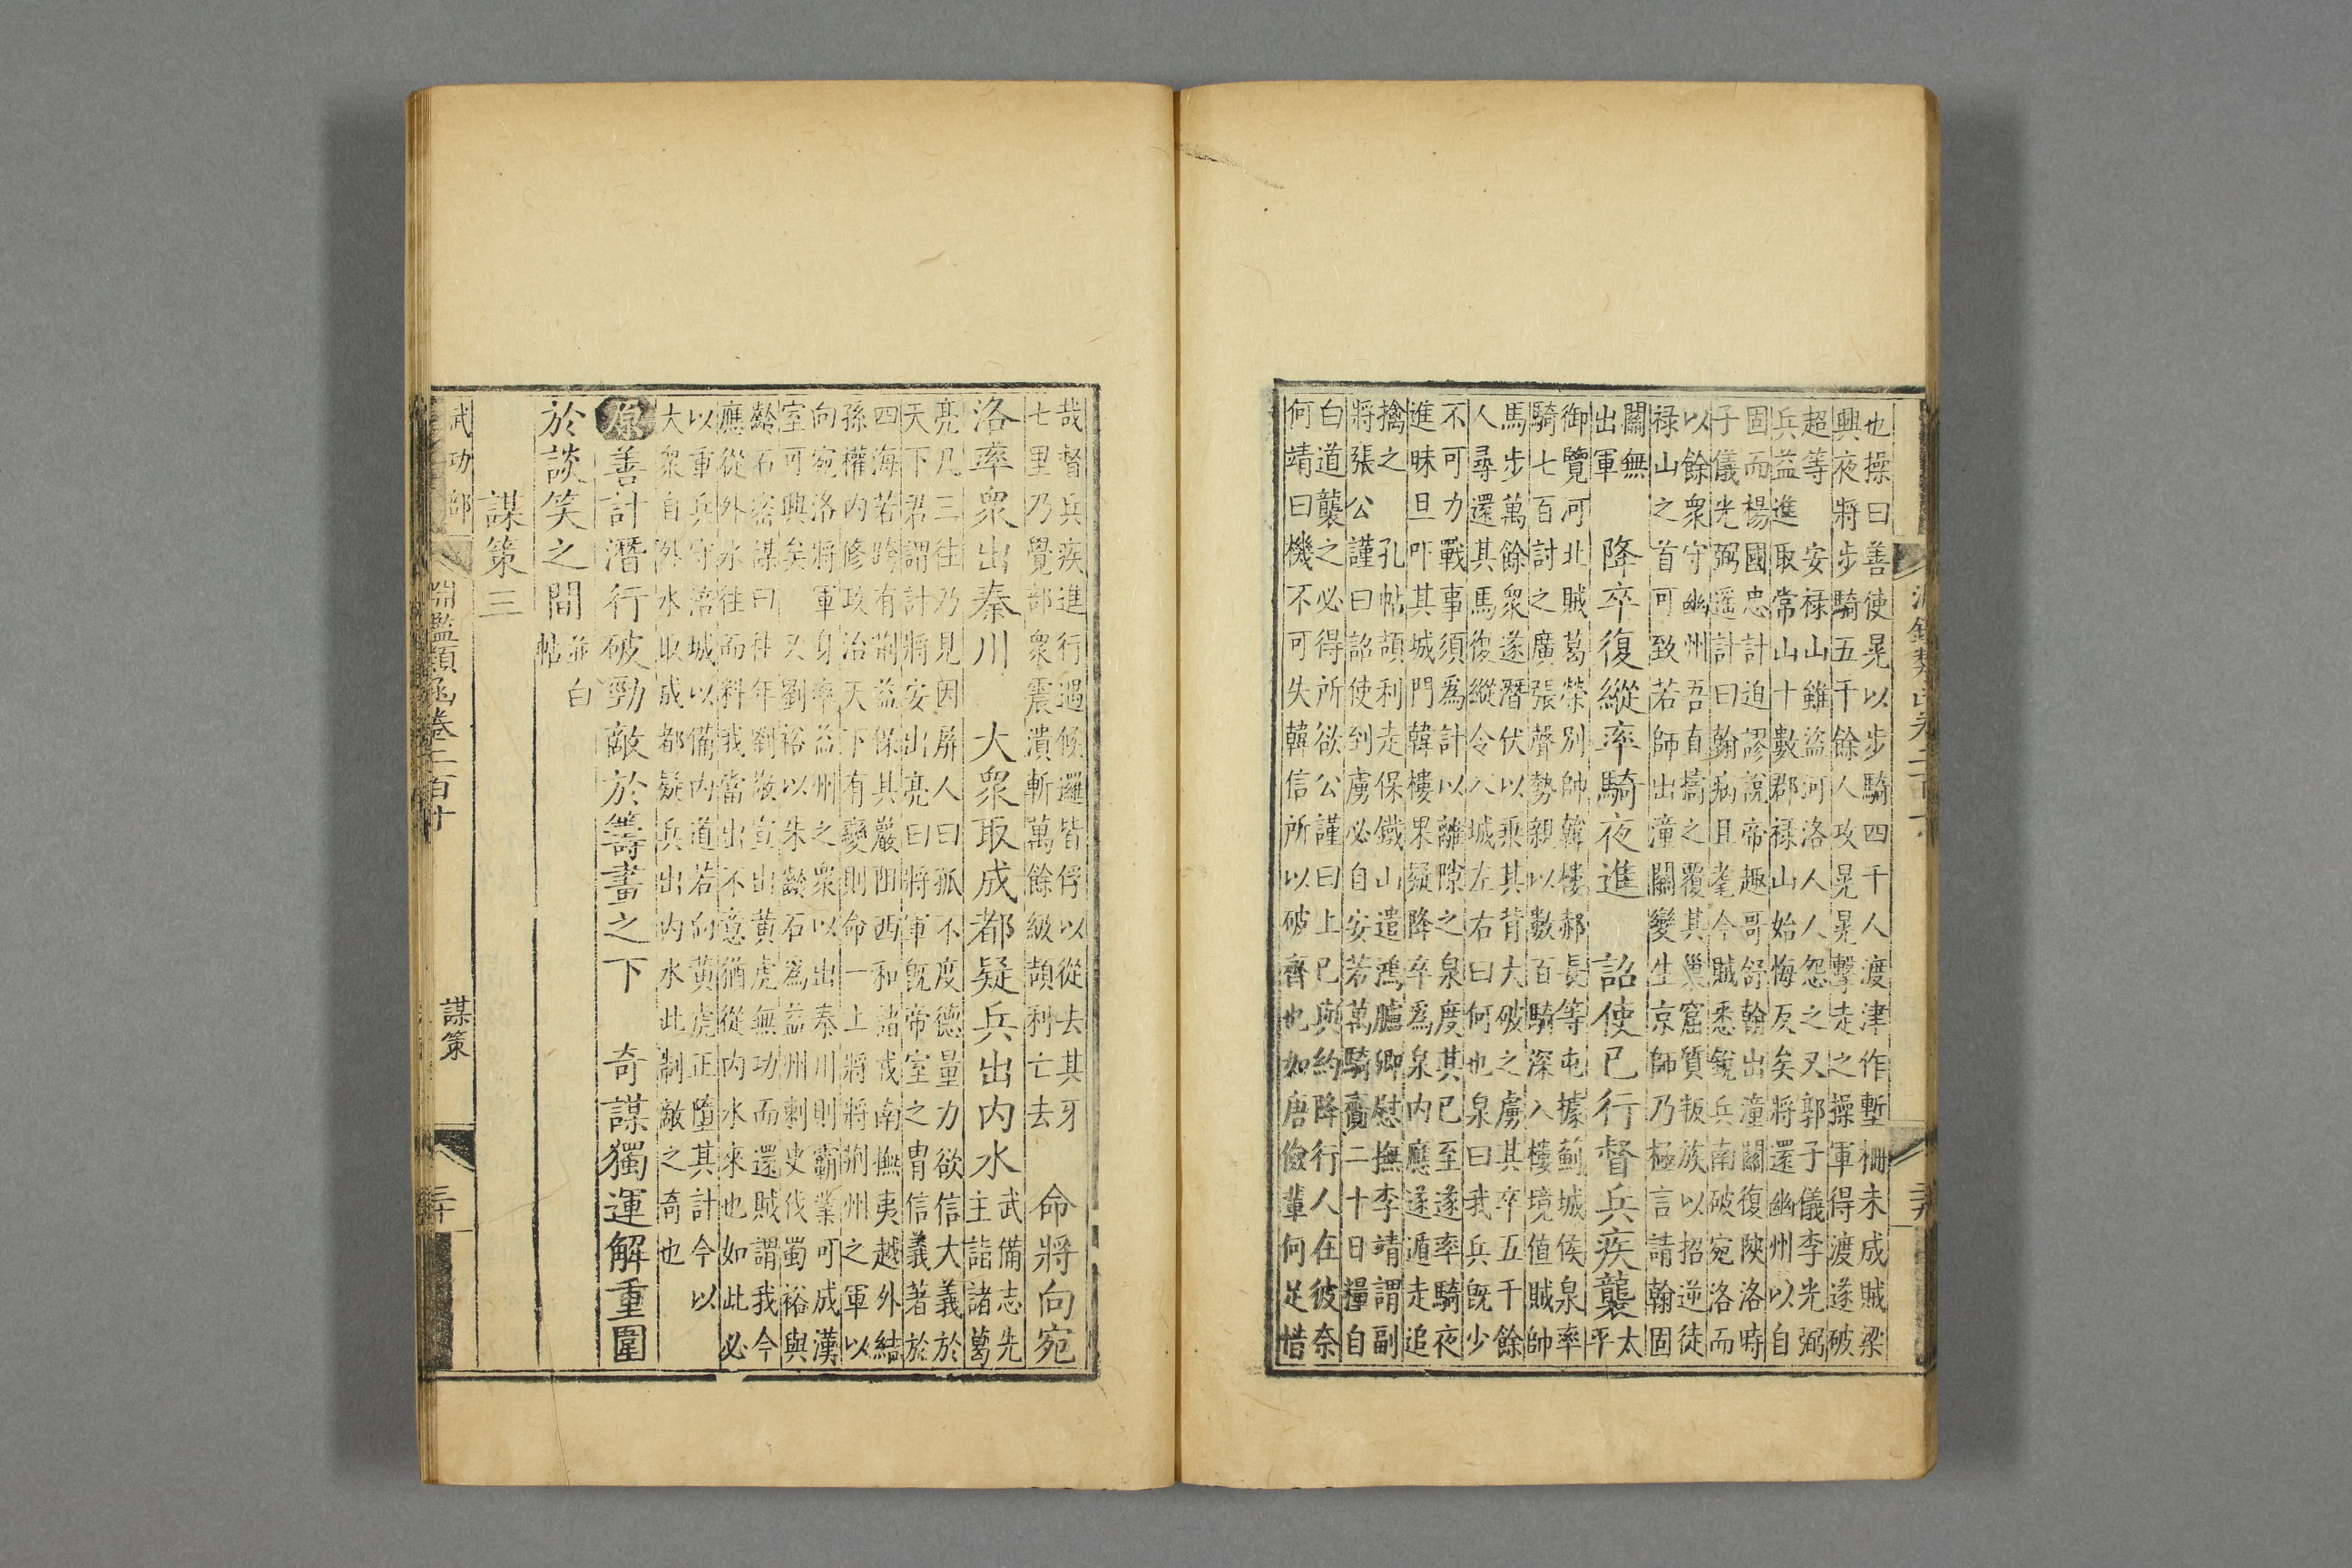 也操曰善使晃以步騎四千人渡津作塹柵未成賊梁
興夜將步騎五千餘人攻晃晃擊走之操軍得渡遂破
超等 安禄山雖盜河洛人人怨之又郭子儀李光弼
兵益進取常山十數郡禄山始悔反矣將還幽州以自
固而楊國忠計迫謬說帝趣哥舒翰出潼關復陝洛時
子儀光弼遥計曰翰病且耄今賊悉銳兵南破宛洛而
以餘衆守幽州吾直擣之覆其巢窟質叛族以招逆徒
禄山之首可致若師出潼關變生京師乃極言請翰固
關無
出軍
降卒復縱率騎夜進 詔使已行督兵疾襲
太
平
御覽河北賊葛榮別帥韓樓郝長等屯據薊城侯泉率
騎七百討之廣張聲勢親以數百騎深入樓境值賊帥
馬步萬餘衆遂潛伏以乘其背大破之虜其卒五千餘
人尋還其馬復縱令入城左右曰何也泉曰我兵既少
不可力戰事須爲計以離隙之泉度其已至遂率騎夜
進昧旦叩其城門韓樓果疑降卒爲泉内應遂遁走追
擒之 孔帖頡利走保鐵山遣鴻臚卿慰撫李靖謂副
將張公謹曰詔使到虜必自安若萬騎齎二十日糧自
白道襲之必得所欲公謹曰上已與約降行人在彼奈
何靖曰機不可失韓信所以破齊也如唐儉輩何足惜
哉督兵疾進行遇候邏皆俘以從去其牙
七里乃覺部衆震潰斬萬餘級頡利亡去
命將向宛
洛率衆出秦川 大衆取成都疑兵出内水
武備志先
主詣諸葛
亮凡三往乃見因屏人曰孤不度德量力欲信大義於
天下君謂計將安出亮曰將軍既帝室之胄信義著於
四海若跨有荆益保其巖阻西和諸戎南撫夷越外結
孫權内修政治天下有變則命一上將將荆州之軍以
向宛洛將軍身率益州之衆以出秦川則霸業可成漢
室可興矣 又劉裕以朱齡石爲益州刺史伐蜀裕與
齡石密謀曰往年劉敬宣出黄虎無功而還賊謂我今
應從外水往而料我當出不意猶從内水來也如此必
以重兵守涪城以備内道若向黄虎正墮其計今以
大衆自外水取成都疑兵出内水此制敵之奇也
原善計潛行破勁敵於籌畫之下 奇謀獨運解重圍
於談笑之間
並白
帖
謀策三
武功部
淵鑑類函卷二百十
謀策
三十